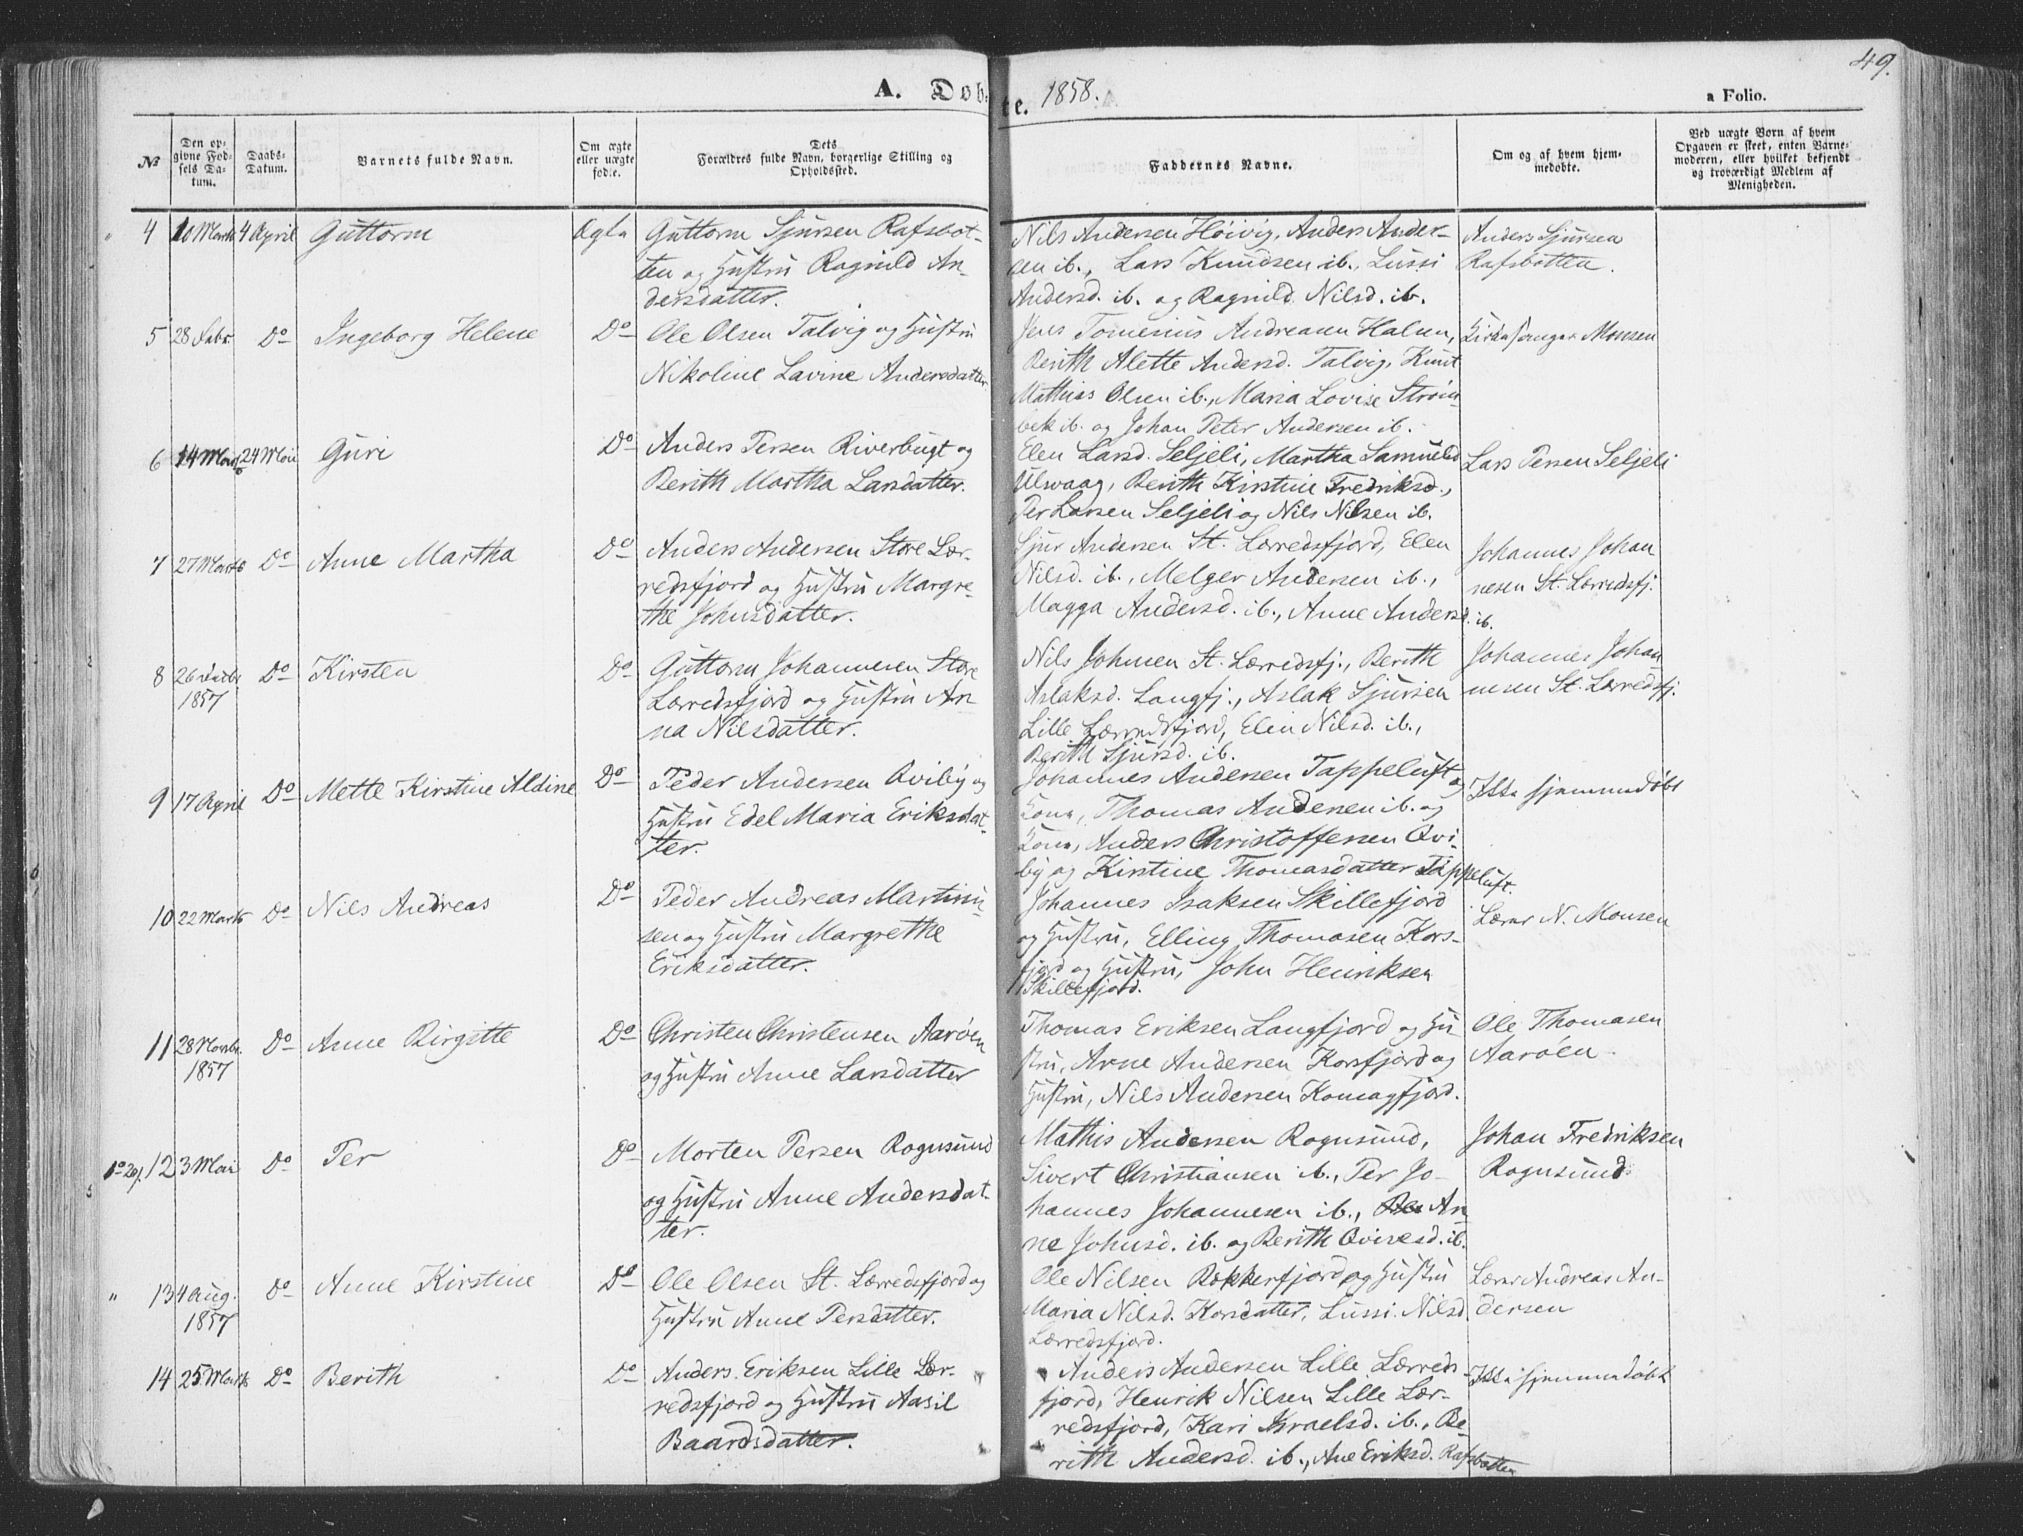 49.
A. Døb-
te. 1858.
a Folio.
No
Den op-
givne Fød-
sels Da-
tum.
Daabs-
Datum.
Barnets fulde Navn.
Om ægte
eller uægte
født.
Dets
Forældres fulde Navn, borgerlige Stilling og
Opholdssted.
Faddernes Navne.
Om og af hvem hjem-
medøbte.
Ved uægte Børn af hvem
Opgaven er skeet, enten Barne-
moderen, eller hvilket bekjendt
og troværdigt Medlem af
Menigheden.
" 4 10 Marts 4 April Guttorm Ægte
Guttorm Sjursen Rafsbot-
ten og Hustru Ragnild An-
dersdatter.
Nils Andersen Høivig, Anders Ander-
sen ib., Lars Knudsen ib., Lussi
Andersd. ib. og Ragnild Nilsd. ib.
Anders Sjursen
Rafsbotten.
5 28 Febr. Do Ingeborg Helene Do
Ole Olsen Talvig og Hustru
Nikoline Lavine Andersdatter
Jens Tomenius Andreasen Halsen,
Berith Alette Andersd. Talvig, Knut
Mathias Olsen ib., Maria Lovise Strøm-
bek ib. og Johan Peter Andersen ib.
Kirkesanger Monsen
6 14 Marts 24 Mai Guri Do
Anders Persen Riverbugt og
Berith Martha Larsdatter.
Elen Larsd. Seljeli, Martha Samuelsd
Ulsvaag, Berith Kirstine Fredriksd.,
Per Larsen Seljeli og Nils Nilsen ib.
Lars Persen Seljeli
7 27 Marts Do Anne Martha Do
Anders Andersen Store Lær-
redsfjord og Hustru Margre-
the Johnsdatter.
Sjur Andersen St. Lærredsfjord, Elen
Nilsd. ib., Melger Andersen ib.,
Magga Andersd. ib., Anne Andersd. ib.
Johannes Johan
nesen St. Lærredsfj.
8 26 1857 Do Kirsten Do
Guttorm Johannesen Store
Lærredsfjord og Hustru An
na Nilsdatter.
Nils Johnsen St. Lærredsfj., Berith
Aslaksd. Langfj., Aslak Sjursen
Lille Lærredsfjord, Elen Nilsd. ib.,
Berith Sjursd. ib.
Johannes Johan
nesen St. Lærredsfj.
9 17 April Do Mette Kirstine Aldine Do
Peder Andersen Qviby og
Hustru Edel Maria Eriksdat-
ter.
Johannes Andersen Tappeluft og
Kone, Thomas Andersen ib. og
Kone, Anders Christoffersen Qvi-
by og Kirstine Thomasdatter Tappeluft.
Ikke hjemmedøbt
10 22 Marts Do Nils Andreas Do
Peder Andreas Martinu-
sen og Hustru Margrethe
Eriksdatter.
Johannes Isaksen Skillefjord
og Hustru, Elling Thomasen Kors-
fjord og Hustru, John Henriksen
Skillefjord.
Lærer N. Monsen
11 28 1857 Do Anne Birgitte Do
Christen Christensen Aarøen
og Hustru Anne Larsdatter
Thomas Eriksen Langfjord og Hu
stru, Arne Andersen Korsfjord og
Hustru, Nils Andersen Komagfjord.
Ole Thomasen
Aarøen.
12 3 Mai Do Per Do
Morten Persen Rognsund
og Hustru Anne Andersdat-
ter.
Mathis Andersen Rognsund,
Sivert Christiansen ib., Per Jo-
hannes Johannesen ib., An
ne Johnsd. ib. og Berith Qvivesd. ib.
Johan Fredriksen
Rognsund.
" 13 4 Aug. 1857 Do Anne Kirstine Do
Ole Olsen St. Lærredsfjord og
Hustru Anne Persdatter.
Ole Nilsen Rokkerfjord og Hustru
Maria Nilsd. Korsdatter, Lussi Nilsd
Lærredsfjord.
Lærer Andreas An-
dersen
14 25 Marts Do Berith Do
Anders Eriksen Lille Lær-
redsfjord og Hustru Aasil
Baardsdatter.
Anders Andersen Lille Lærreds-
fjord, Henrik Nilsen Lille Lær-
redsfjord, Kari Israelsd. ib., Be-
rith Andersd. ib., Ane Eriksd. Rafsbotten
Ikke hjemmedøbt